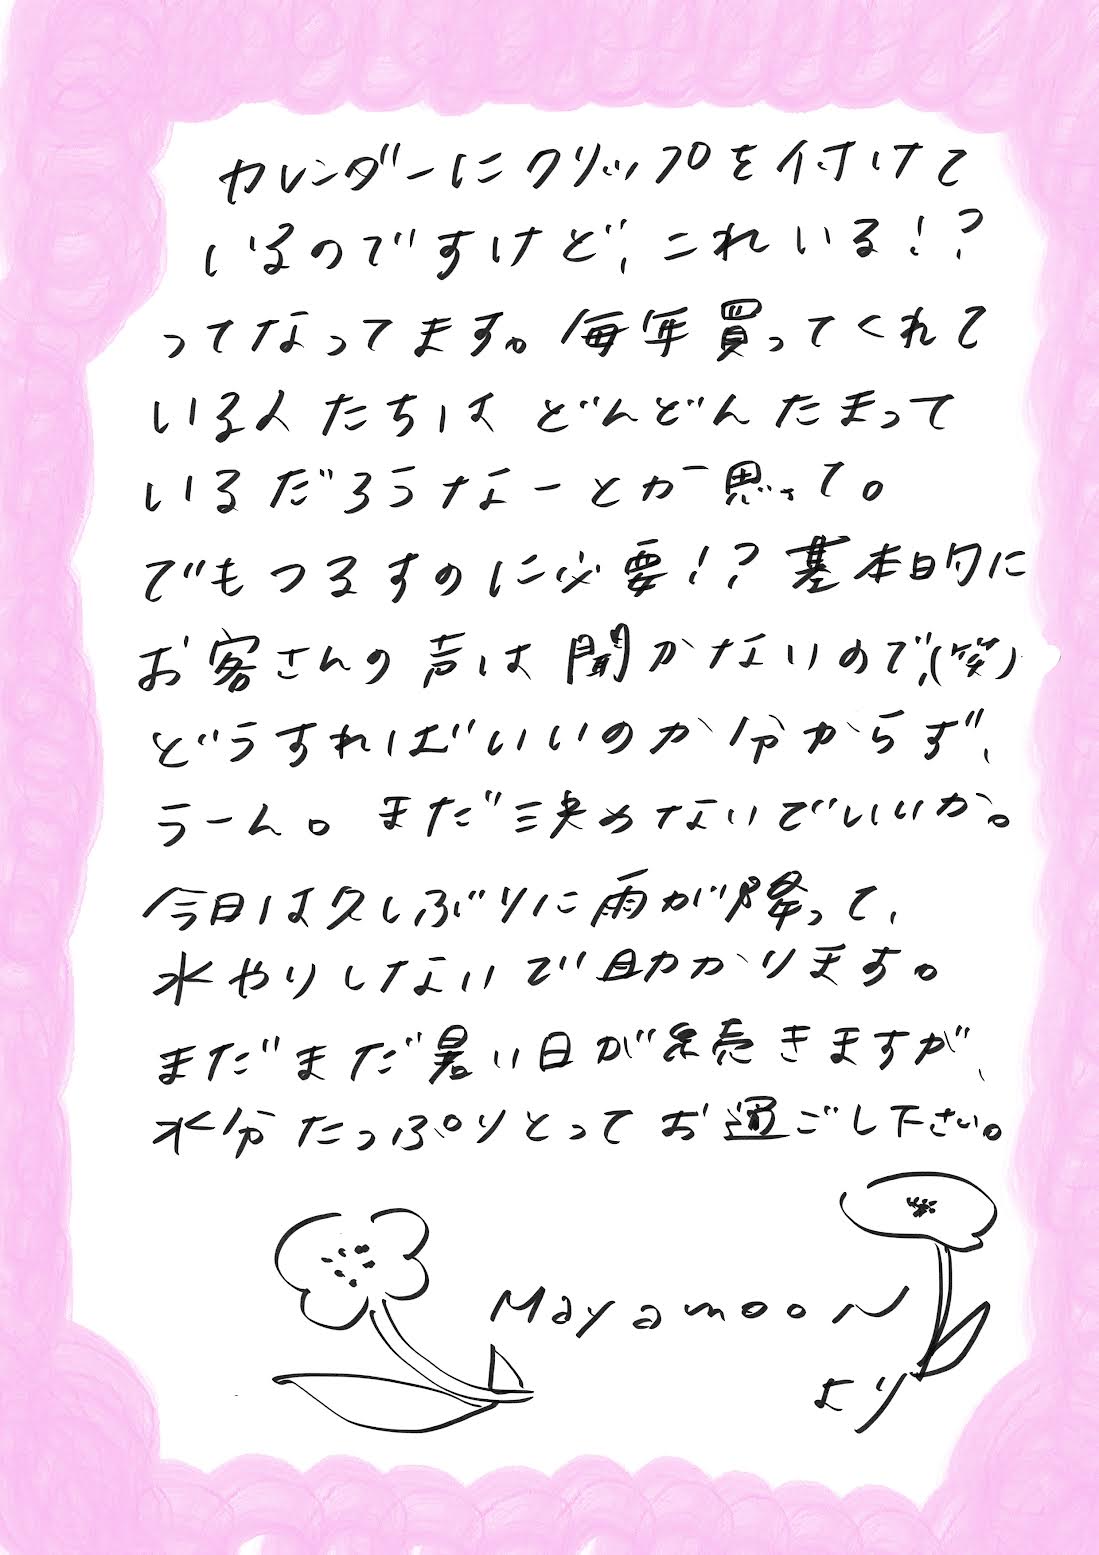 カレンダーにクリップを付けて
いるのですけど、これいる!?
ってなってます。毎年買ってくれて
いる人たちは どんどんたまって
いるだろうなーとか思って。
でもつるすのに必要!? 基本的に
お客さんの声は聞かないので、(笑)
どうすればいいのか分からず、
うーん。まだ決めないでいいか。
今日は久しぶりに雨が降って、
水やりしないで助かります。
まだまだ暑い日が続きますが、
水分たっぷりとってお過ごし下さい。
Mayamoon
より